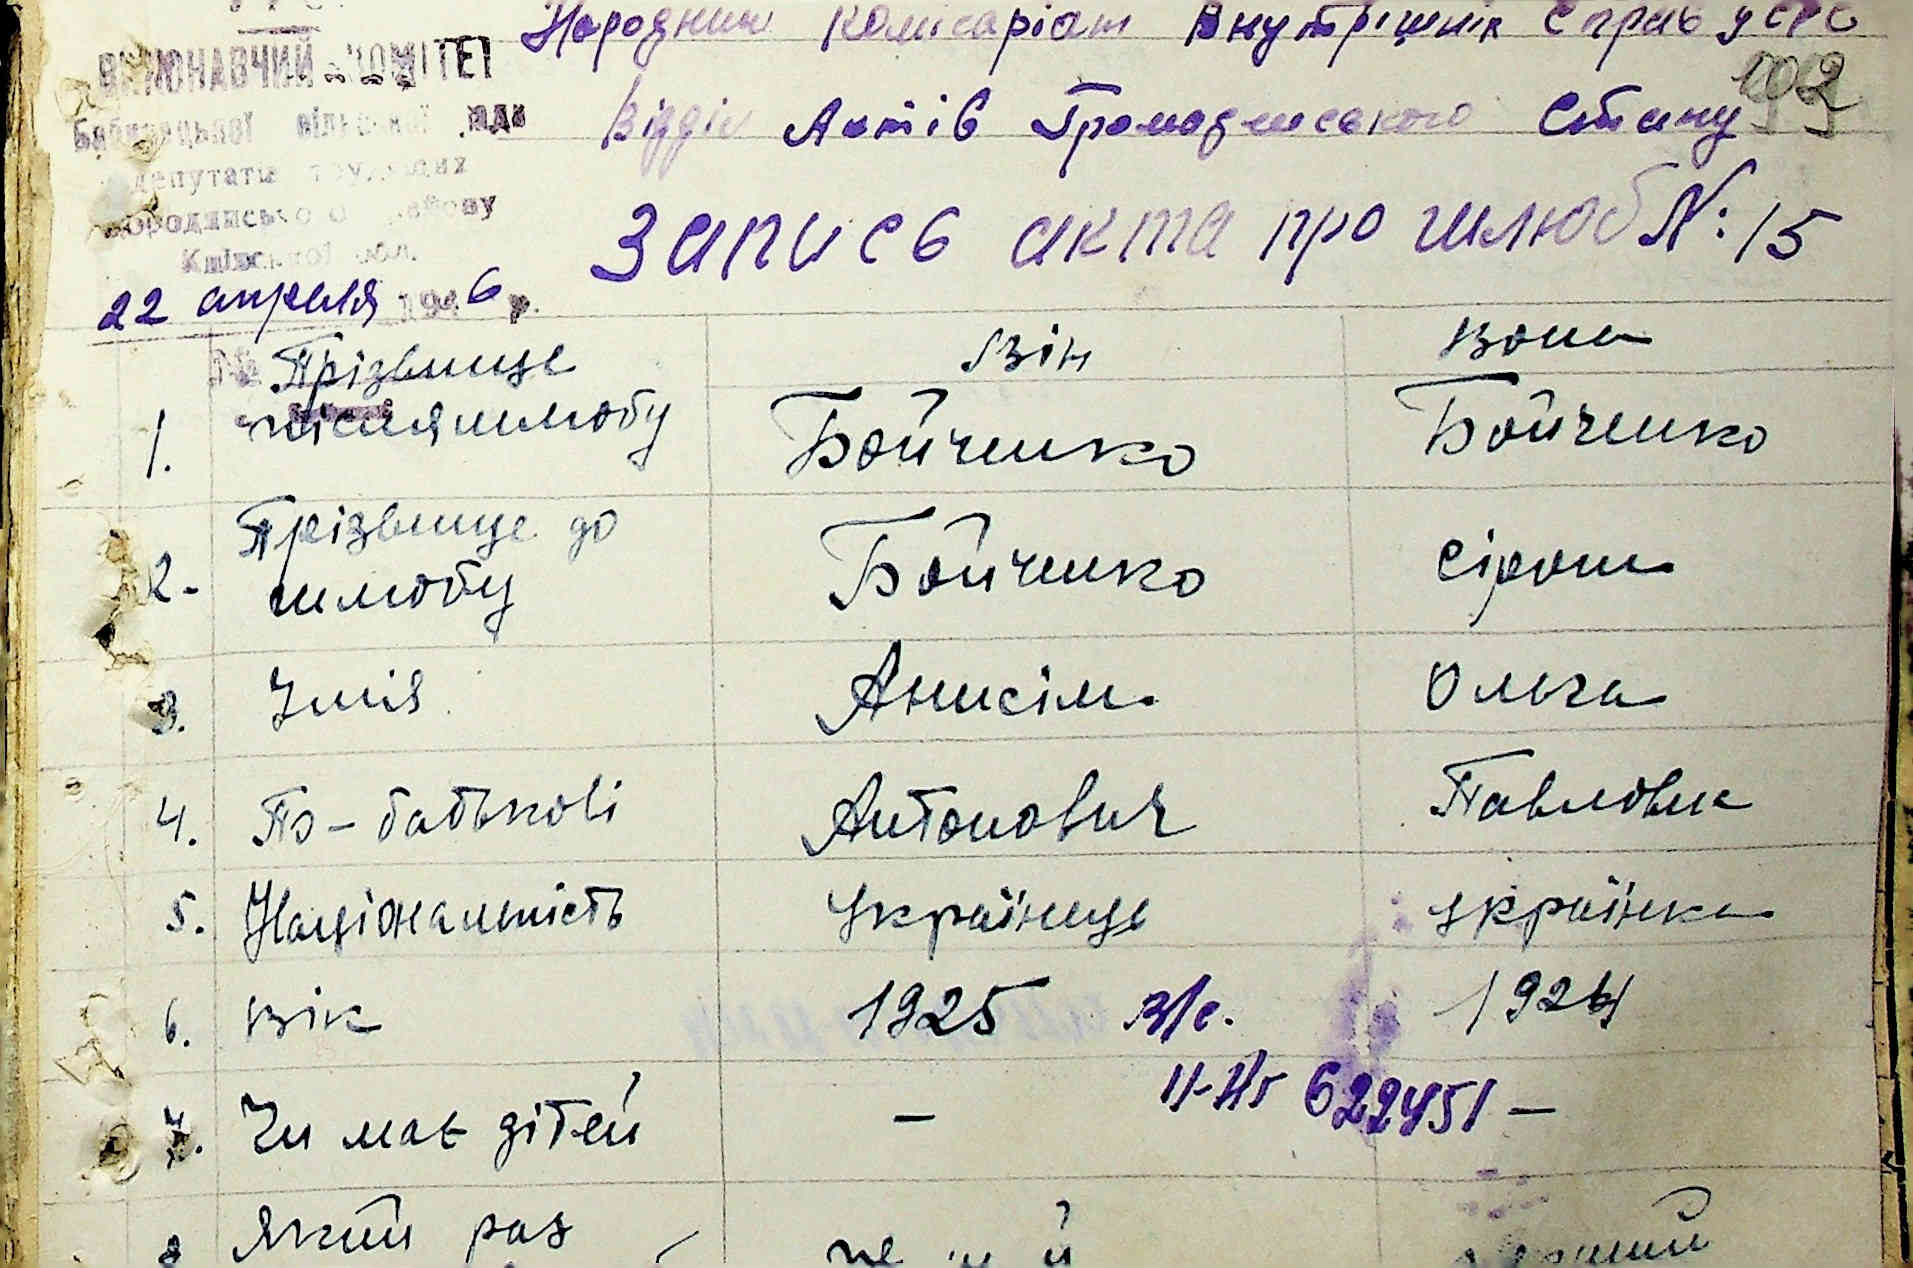 Народний Комісаріат Внутрішніх Справ УСРС
ВИКОНАВЧИЙ КОМІТЕТ
102
Відділ Актів Громадянського Стану
депутатів трудящих
Бородянського району
Київської обл.
Запись акта про шлюб №: 15
22 апреля 1946 р.
Прізвище Він Вона
1. після шлюбу Бойченко Бойченко
2- Прізвище до шлюбу Бойченко Сірош
3. Імія Анисім Ольга
4. По-батькові Антонович Павловна
5. Національність Українець Українка
6. Вік 1925 В/с. 1924
7. Чи має дітей – 622451 –
8 Який раз